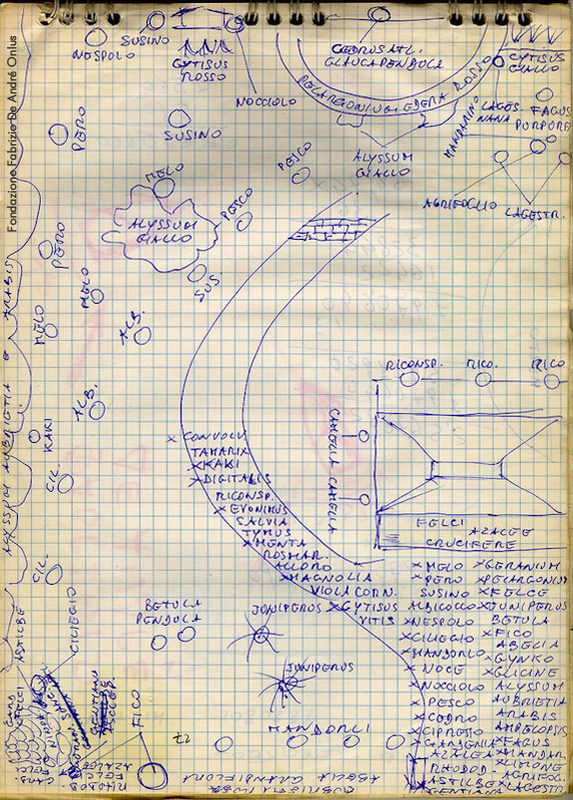 Fondazione Fabrizio De André Onlus
NESPOLO
SUSINO
CYTISUS
ROSSO
NOCCIOLO
CEDRUS ATL.
GLAUCA PENDULA
PELARGONIUM EDERA ROSSO
CYTISUS
GIALLO
LAGES.
NANA
FAGUS
PURPUREA
MANDARINO
PERO
SUSINO
ALYSSUM
GIALLO
MELO
PESCO
AGRIFOGLIO
LAGESTR.
ALYSSUM
GIALLO
PESCO
PERO
SUS.
MELO
MELO
ALB.
ALB.
KAKI
CIL.
CIL.
ALYSSUM AUBRIETIA E ARABIS
RICONSP.
RICO.
RICO
CAMELIA CAMELIA
FELCI
AZALEE
CRUCIFERE
× CONVOLV
TAMARIX
× KAKI
× DIGITALIS
RICONSP.
× EVONIMUS
SALVIA
TYMUS
× MENTA
ROSMAR.
ALLORO
× MAGNOLIA
VIOLA CORN.
× CYTISUS
VITIS
× MELO
× PERO
SUSINO
ALBICOCCO
× NESPOLO
× CILIEGIO
× MANDORLO
× NOCE
× NOCCIOLO
× PESCO
× CEDRO
× CIPRESSO
× GARDENIA
AZALEA
× RHODOD
× ASTILBE
× GENTIANA
× GERANIUM
× PELARGONIUM
× FELCE
× JUNIPERUS
BETULA
× FICO
ABELIA
× GYNKO
× GLICINE
ALYSSUM
AUBRIETIA
ARABIS
AMPELOPSIS
× FAGUS
× MANDAR.
× LIMONE
AGRIFOG.
× LAGESTR.
BETULA
PENDULA
JUNIPERUS
JUNIPERUS
MANDORLI
CILIEGIO
ASTILBE
FICO
ABELIA GRANDIFLORA
RHODOD.
FELCI
AZALEE